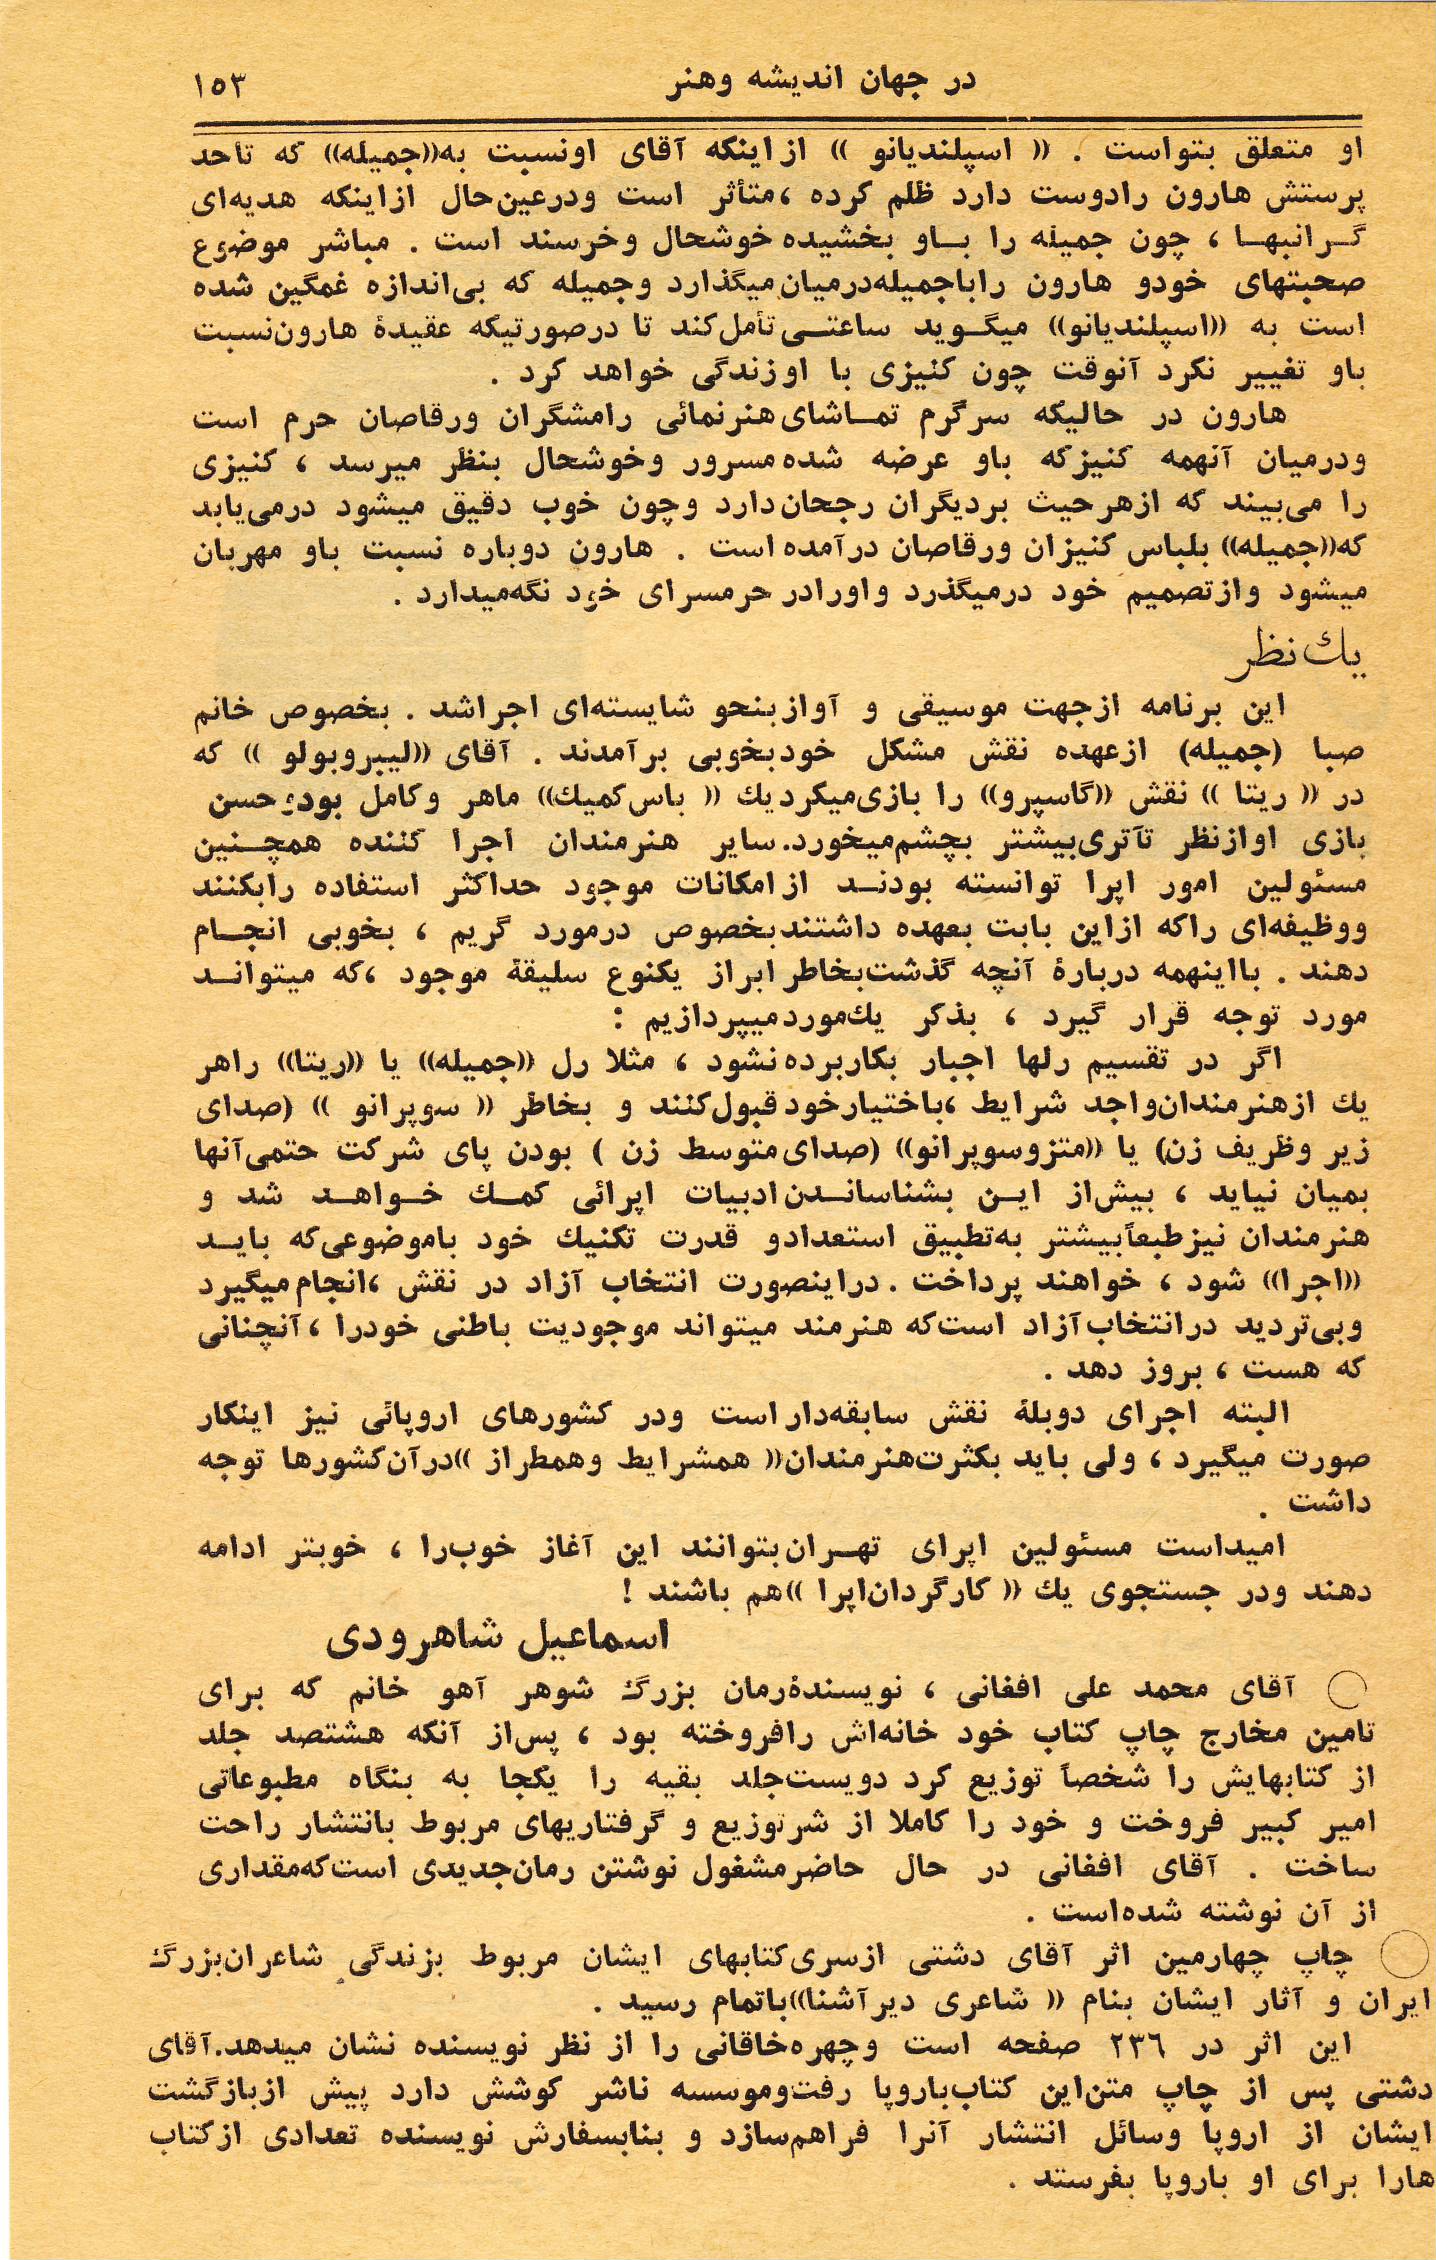 در جهان اندیشه وهنر
۱۵۳
او متعلق بتواست . (( اسپلندیانو )) از اینکه آقای اونسبت به((جمیله)) که تاحد
پرستش هارون رادوست دارد ظلم کرده ، متأثر است ودرعین‌حال ازاینکه هدیه‌ای
گرانبها ، چون جمیله را باو بخشیده خوشحال وخرسند است . مباشر موضوع
صحبتهای خودو هارون راباجمیله‌درمیان میگذارد وجمیله که بی‌اندازه غمگین شده
است به ((اسپلندیانو)) میگوید ساعتی تأمل‌کند تا درصورتیکه عقیدهٔ هارون‌نسبت
باو تغییر نکرد آنوقت چون کنیزی با اوزندگی خواهد کرد .
هارون در حالیکه سرگرم تماشای هنرنمائی رامشگران ورقاصان حرم است
ودرمیان آنهمه کنیزکه باو عرضه شده مسرور وخوشحال بنظر میرسد ، کنیزی
را می‌بیند که ازهرحیث بردیگران رجحان‌دارد وچون خوب دقیق میشود درمی‌یابد
که((جمیله)) بلباس کنیزان ورقاصان درآمده است . هارون دوباره نسبت باو مهربان
میشود وازتصمیم خود درمیگذرد واورادر حرمسرای خود نگه‌میدارد .
یك نظر
این برنامه ازجهت موسیقی و آواز بنحو شایسته‌ای اجراشد . بخصوص خانم
صبا (جمیله) ازعهده نقش مشکل خودبخوبی برآمدند . آقای ((لیبروبولو )) که
در (( ریتا )) نقش ((گاسپرو)) را بازی‌میکرد یك (( باس‌کمیك)) ماهر وکامل بودو حسن
بازی اوازنظر تآتری‌بیشتر بچشم‌میخورد. سایر هنرمندان اجرا کننده همچنین
مسئولین امور اپرا توانسته بودند از امکانات موجود حداکثر استفاده رابکنند
ووظیفه‌ای راکه ازاین بابت بعهده داشتندبخصوص درمورد گریم ، بخوبی انجام
دهند . بااینهمه دربارهٔ آنچه گذشت‌بخاطر ابراز یکنوع سلیقهٔ موجود ،که میتواند
مورد توجه قرار گیرد ، بذکر یك‌مورد میپردازیم :
اگر در تقسیم رلها اجبار بکاربرده نشود ، مثلا رل ((جمیله)) یا ((ریتا)) راهر
یك ازهنرمندان‌واجد شرایط ،باختیارخود قبول‌کنند و بخاطر (( سوپرانو )) (صدای
زیر وظریف زن) یا ((متزوسوپرانو)) (صدای متوسط زن ) بودن پای شرکت حتمی‌آنها
بمیان نیاید ، بیش‌از این بشناساندن ادبیات اپرائی کمك خواهد شد و
هنرمندان نیزطبعاً بیشتر به‌تطبیق استعدادو قدرت تکنیك خود باموضوعی‌که باید
((اجرا)) شود ، خواهند پرداخت . دراینصورت انتخاب آزاد در نقش ،انجام میگیرد
وبی‌تردید درانتخاب آزاد است‌که هنرمند میتواند موجودیت باطنی خودرا ، آنچنانی
که هست ، بروز دهد .
البته اجرای دوبلهٔ نقش سابقه‌دار است ودر کشورهای اروپائی نیز اینکار
صورت میگیرد ، ولی باید بکثرت‌هنرمندان(( همشرایط وهمطراز ))درآن‌کشورها توجه
داشت .
امیداست مسئولین اپرای تهران بتوانند این آغاز خوب‌را ، خوبتر ادامه
دهند ودر جستجوی یك (( کارگردان‌اپرا ))هم باشند !
اسماعیل شاهرودی
آقای محمد علی افغانی ، نویسندهٔ رمان بزرگ شوهر آهو خانم که برای
تامین مخارج چاپ کتاب خود خانه‌اش رافروخته بود ، پس‌از آنکه هشتصد جلد
از کتابهایش را شخصاً توزیع کرد دویست‌جلد بقیه را یکجا به بنگاه مطبوعاتی
امیر کبیر فروخت و خود را کاملا از شرتوزیع و گرفتاریهای مربوط بانتشار راحت
ساخت . آقای افغانی در حال حاضر مشغول نوشتن رمان‌جدیدی است‌که‌مقداری
از آن نوشته شده‌است .
چاپ چهارمین اثر آقای دشتی ازسری کتابهای ایشان مربوط بزندگی شاعران‌بزرگ
ایران و آثار ایشان بنام (( شاعری دیرآشنا))باتمام رسید .
این اثر در ۲۳٦ صفحه است وچهره خاقانی را از نظر نویسنده نشان میدهد.آقای
دشتی پس از چاپ متن‌این کتاب‌باروپا رفت‌وموسسه ناشر کوشش دارد پیش ازبازگشت
ایشان از اروپا وسائل انتشار آنرا فراهم‌سازد و بنابسفارش نویسنده تعدادی ازکتاب
هارا برای او باروپا بفرستد .